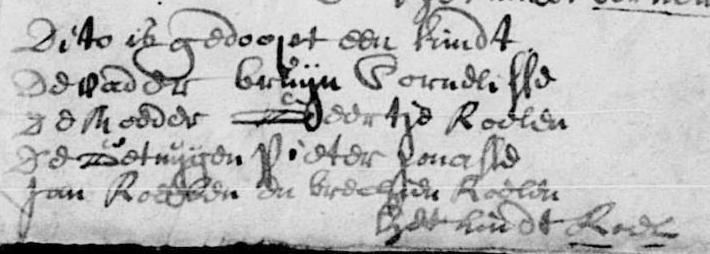 Dito is gedoopt een kindt
De vader bruijn Cornelisse
De Moeder Neertje Roelen
De Getuijgen Pieter Jonasse
Jan Roelen en brechjen Roelen
het kindt Roel